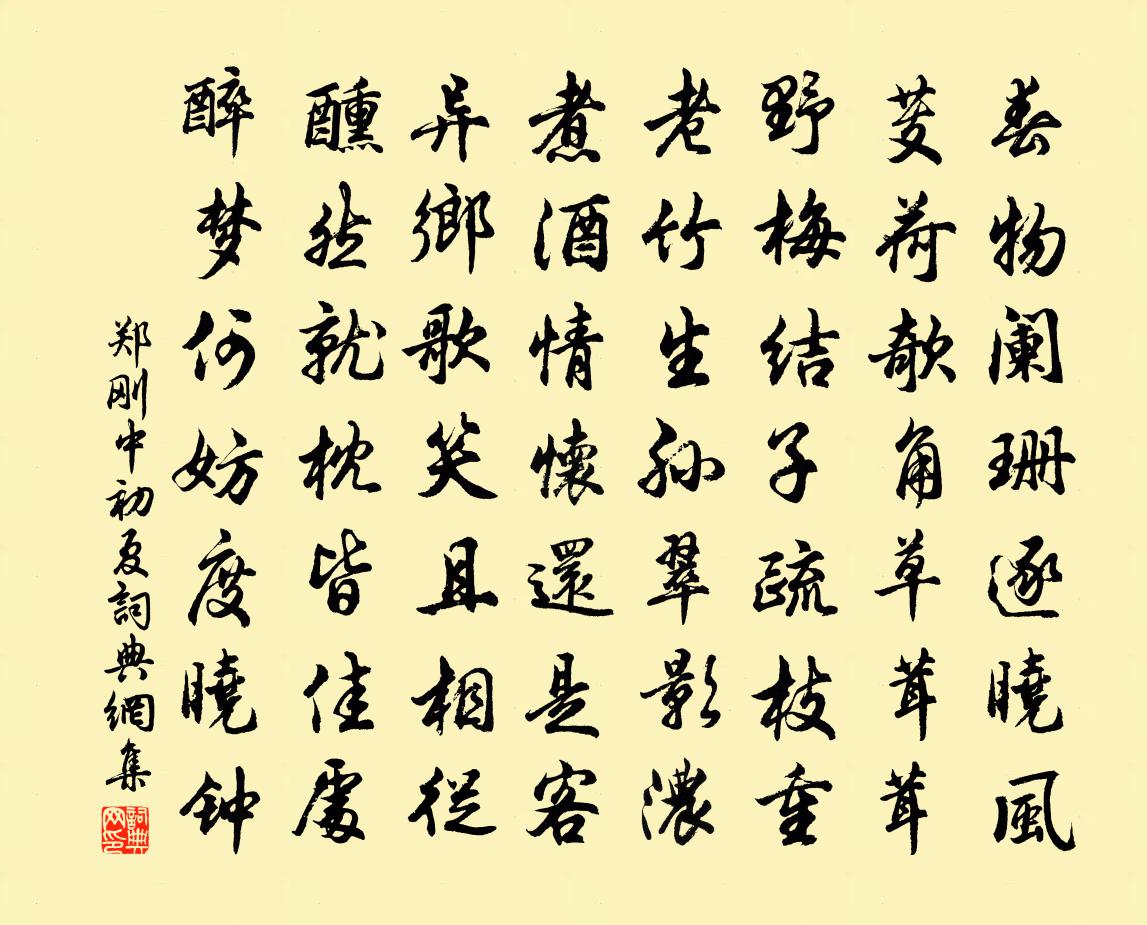 春物阑珊逐曉風
芰荷欹角草茸茸
野梅结子疏枝重
老竹生孙翠影濃
煮酒情懷還是客
异鄉歌笑且相從
醺然就枕皆佳處
醉梦何妨度曉钟
郑刚中初夏詞典網集
詞典网印